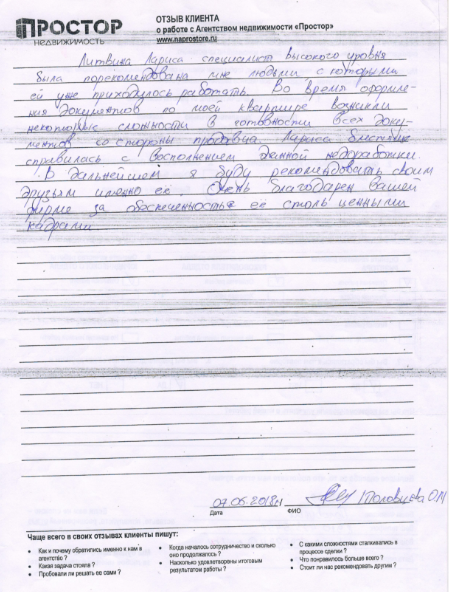 ПРОСТОР
НЕДВИЖИМОСТЬ
ОТЗЫВ КЛИЕНТА
о работе с Агентством недвижимости «Простор»
www.naprostore.ru
Литвина Лариса специалист высокого уровня
была порекомендована мне людьми с которыми
ей уже приходилось работать. Во время оформле-
ния документов по моей квартире возникли
некоторые сложности в готовности всех доку-
ментов со стороны продавца. Лариса блестяще
справилась с восполнением данной недоработки
В дальнейшем я буду рекомендовать своим
друзьям именно ее. Очень благодарен вашей
фирме за обеспеченность ее столь ценными
кадрами
07.05.2018г
Дата
ФИО
Чаще всего в своих отзывах клиенты пишут:
• Как и почему обратились именно к нам в агентство ?
• Какая задача стояла ?
• Пробовали ли решать ее сами ?
• Когда началось сотрудничество и сколько оно продолжалось ?
• Насколько удовлетворены итоговым результатом работы ?
• С какими сложностями сталкивались в процессе сделки ?
• Что понравилось больше всего ?
• Стоит ли нас рекомендовать другим ?